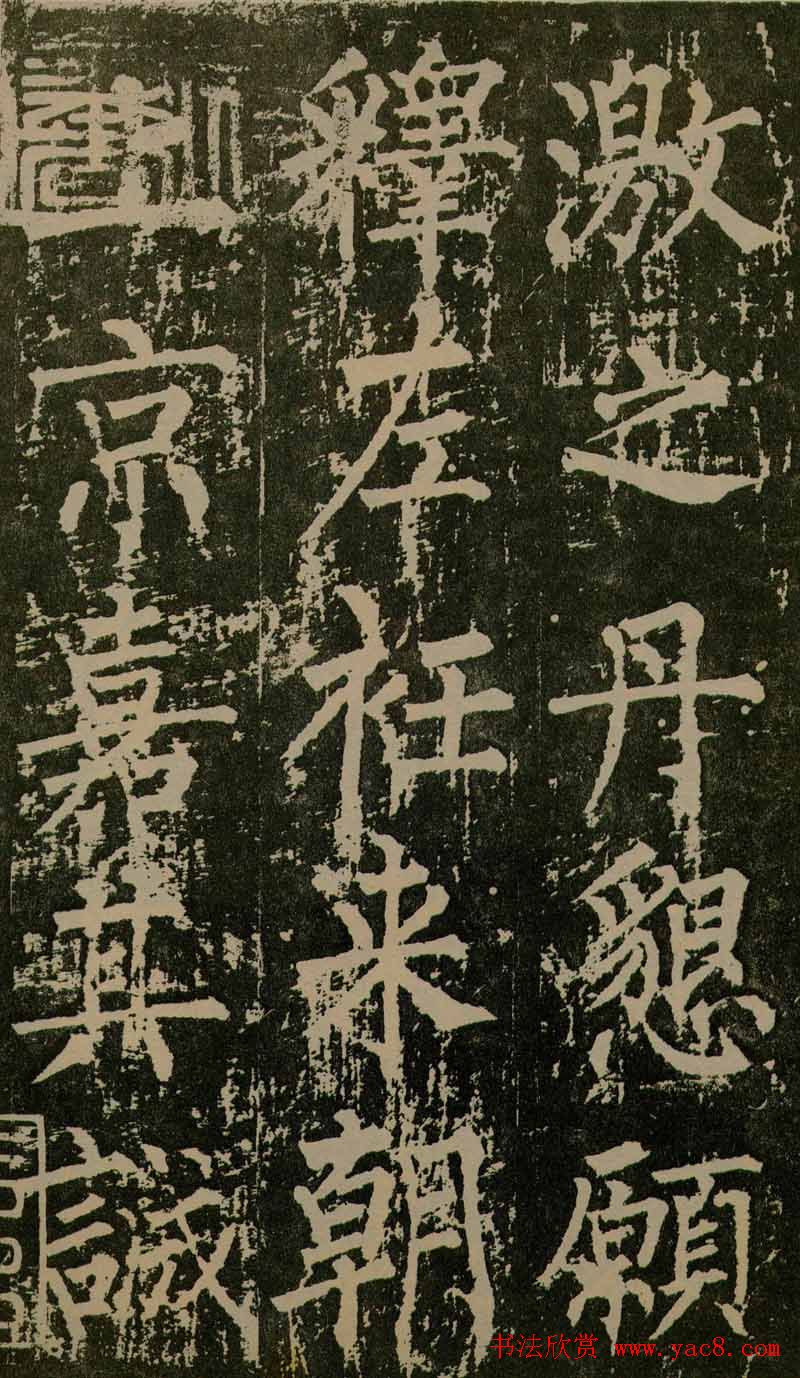 激之丹懇願
釋左衽来朝
上京嘉其誠
书法欣赏 www.yac8.com